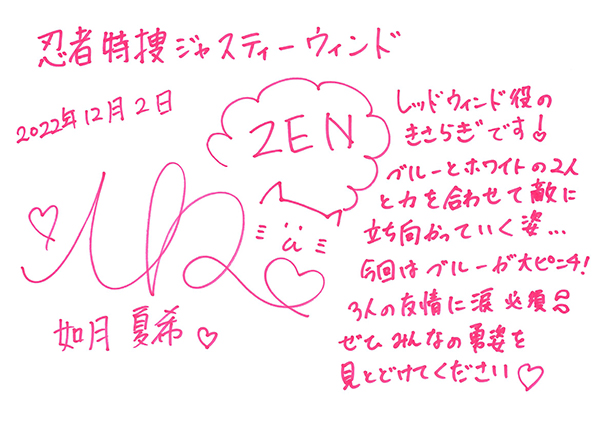 忍者特捜ジャスティーウィンド
2022年12月2日
ZEN
如月 夏希♡
レッドウィンド役の
きさらぎです!
ブルーとホワイトの2人
と力を合わせて敵に
立ち向かっていく姿...
今回はブルーが大ピンチ!
3人の友情に涙必須
ぜひみんなの勇姿を
見とどけてください♡